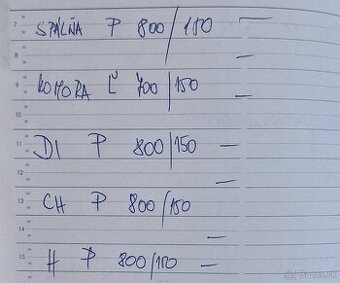 7 SPÁLŇA P 800/150 —
8 —
9 KOMORA Ľ 700/150 —
10
11 DI P 800/150 —
12 —
13 CH P 800/150
14 —
15 H P 800/150 —